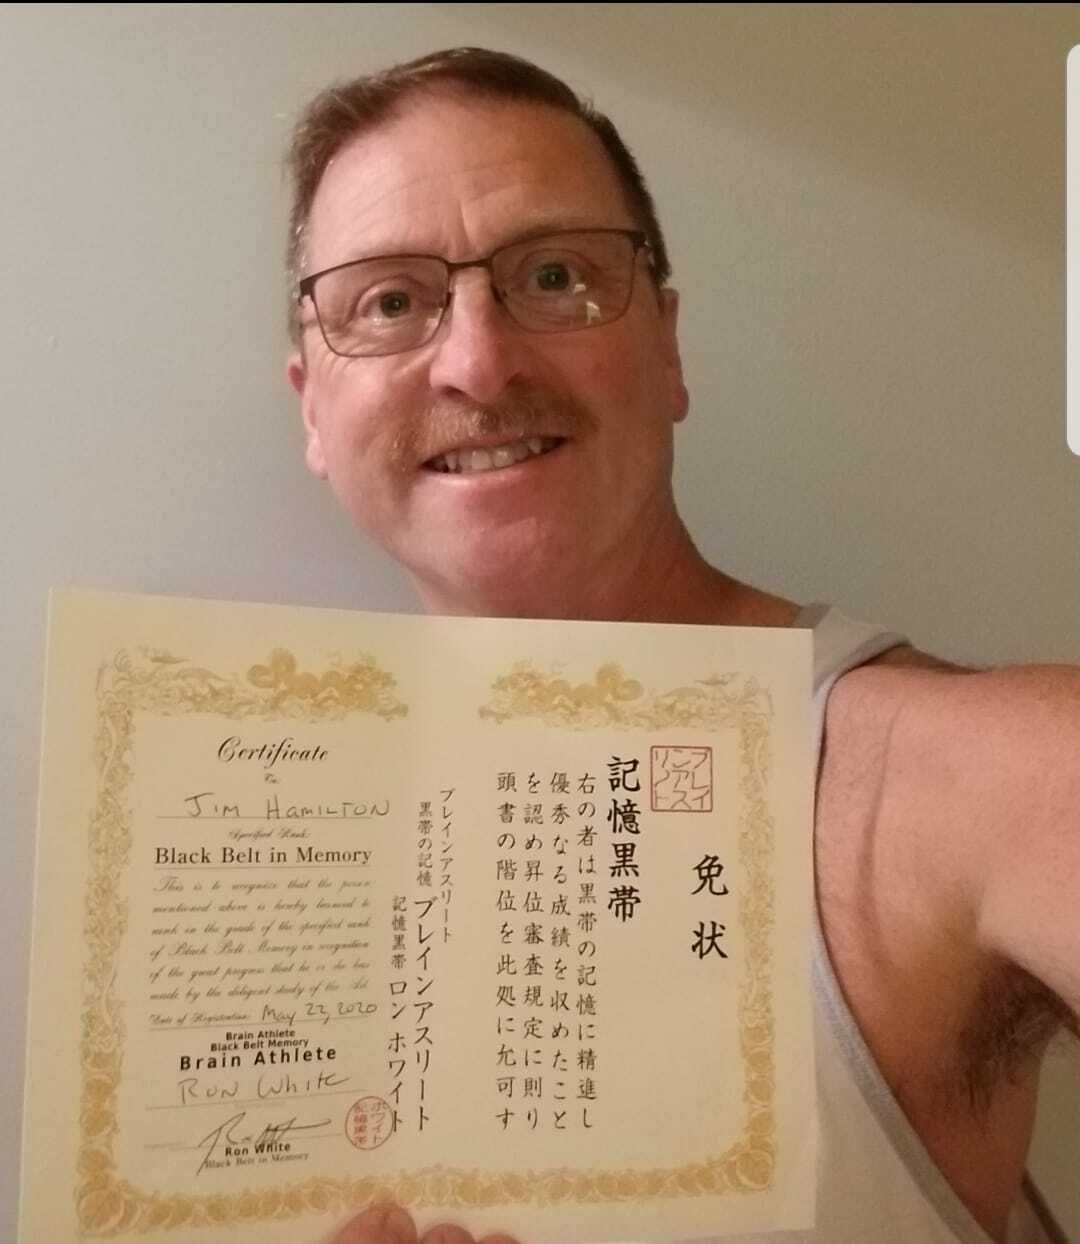 Certificate
To:
JIM HAMILTON
Specified Rank
Black Belt in Memory
This is to recognize that the person
mentioned above is hereby licensed to
rank in the grade of the specified rank
of Black Belt Memory in recognition
of the great progress that he or she has
made by the diligent study of the Art.
Date of Registration: May 22, 2020
Brain Athlete
Black Belt Memory
Brain Athlete
RON White
Ron White
Black Belt in Memory
免状
記憶黒帯
右の者は黒帯の記憶に精進し
優秀なる成績を収めたこと
を認め昇位審査規定に則り
頭書の階位を此処に允可す
ブレインアスリート
黒帯の記憶
ブレインアスリート
記憶黒帯 ロン ホワイト
ブレイ
ンアス
リート
ホワイト
記憶黒帯